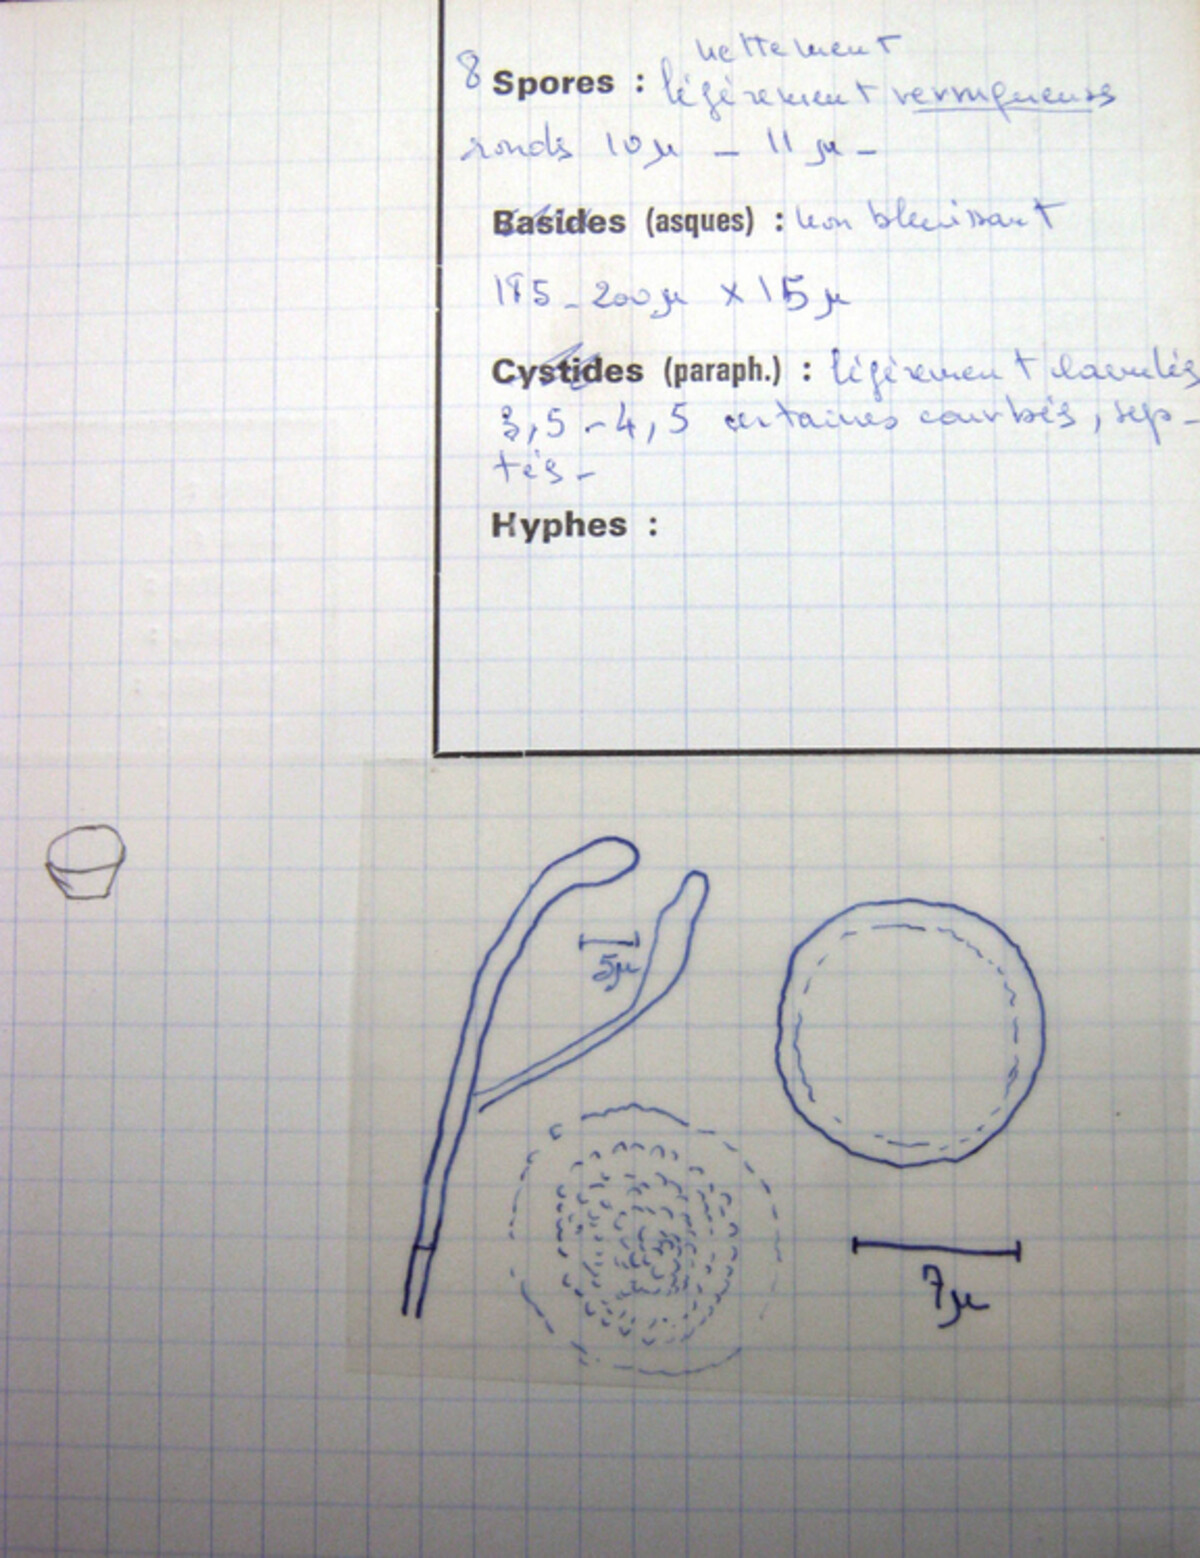 nettement
8 Spores : légèrement verruqueuses
ronds 10 µ - 11 µ -
Basides (asques) : non bleuissant
185 - 200 µ x 15 µ
Cystides (paraph.) : légèrement
3,5 - 4,5 certaines courbés, sep-
tés -
Hyphes :
5µ
7µ